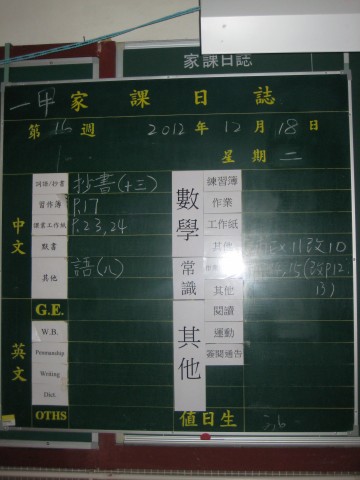 家課日誌
一甲 家課日誌
第 16 週 2012 年 12 月 18 日
星期 二
中文
詞語/抄書 抄書(十三)
習作簿 P.17
讀書工作紙 P.23,24
默書
其他 語(八)
G.E.
英文
W.B.
Penmanship
Writing
Dict.
OTHS
數學
練習簿
作業
工作紙
其他 Ex 11改10
常識
15(改P12,13)
其他
其他
閱讀
運動
簽閱通告
值日生